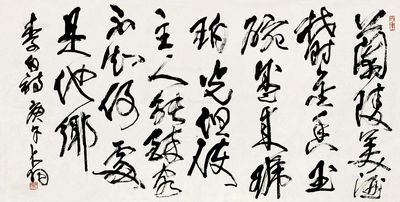 蘭陵美酒
郁金香玉
碗盛來琥
珀光但使
主人能醉客
不知何處
是他鄉
李白詩 庚午